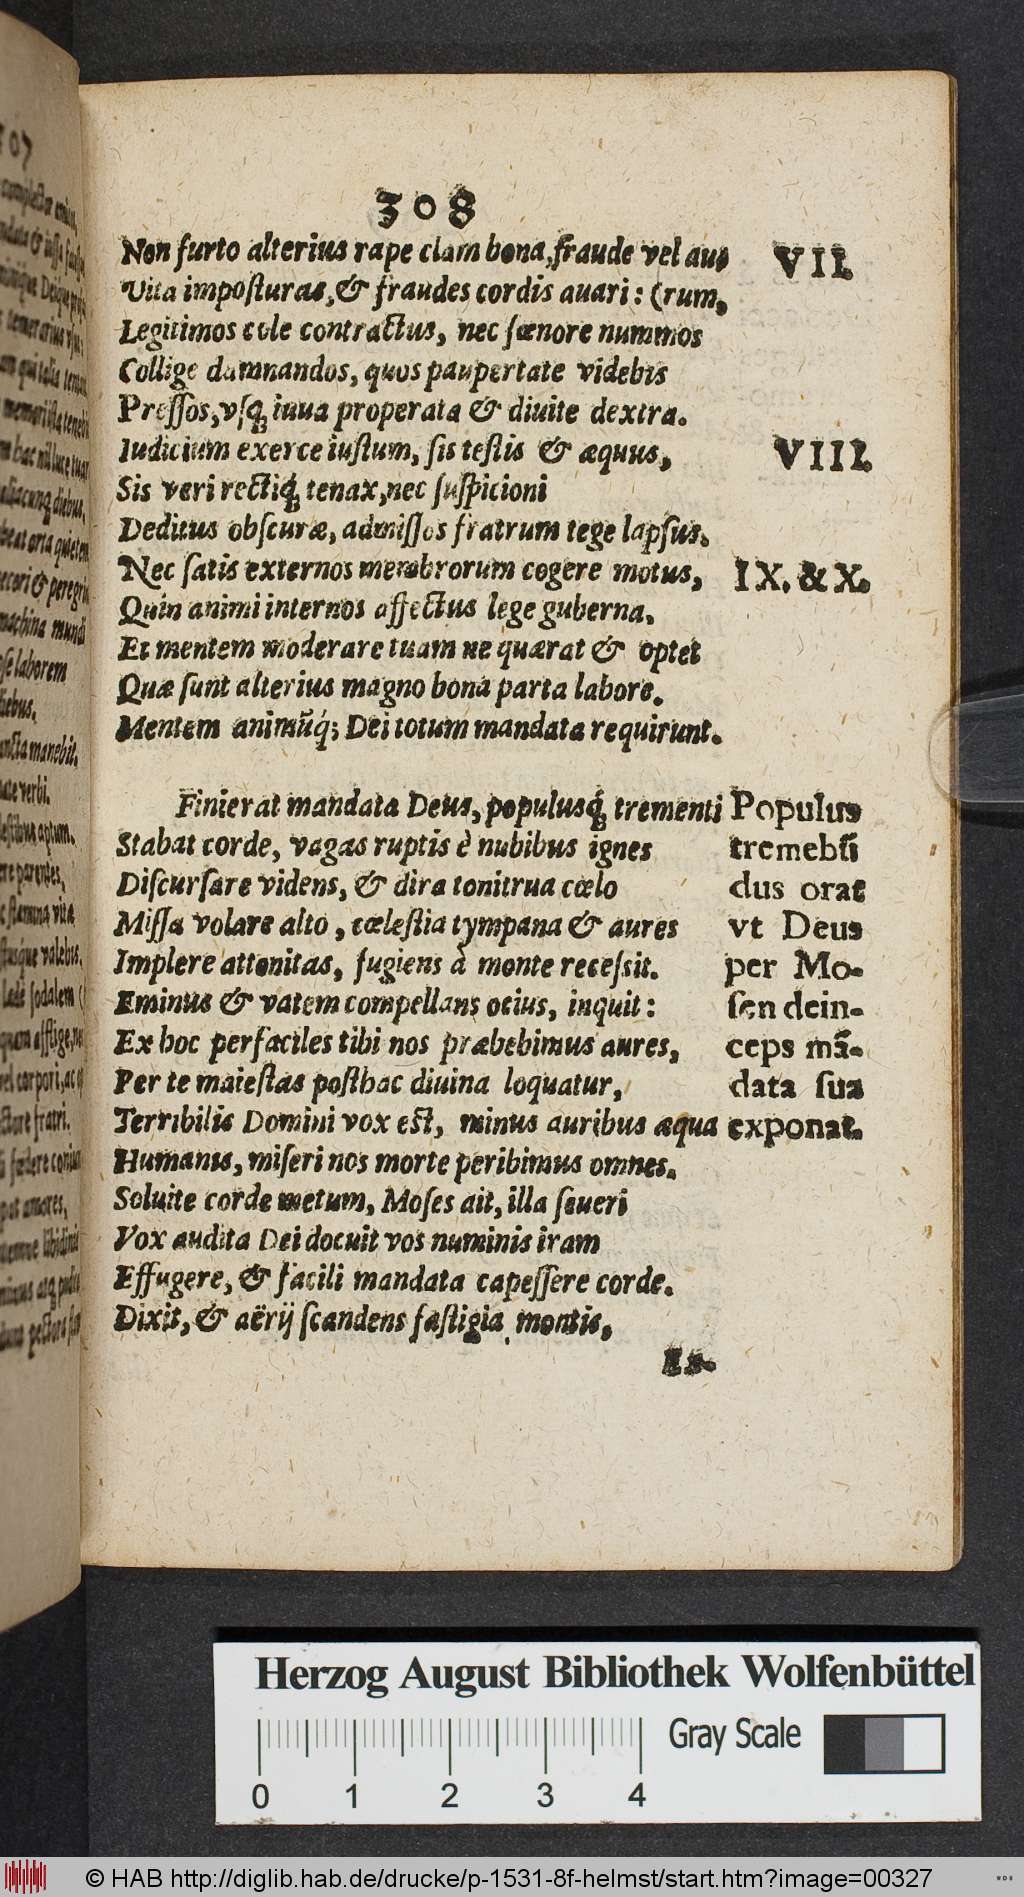 308
Non furto alterius rape clam bona, fraude vel au- VII.
Vita imposturas, & fraudes cordis auari: (rum,
Legitimos cole contractus, nec fœnore nummos
Collige damnandos, quos paupertate videbis
Pressos, vsq; iuua properata & diuite dextra.
Iudicium exerce iustum, sis testis & æquus, VIII.
Sis veri rectiq; tenax, nec suspicioni
Deditus obscuræ, admissos fratrum tege lapsus.
Nec satis externos membrorum cogere motus, IX. & X.
Quin animi internos affectus lege guberna.
Et mentem moderare tuam ne quærat & optet
Quæ sunt alterius magno bona parta labore.
Mentem animũq; Dei totum mandata requirunt.
Finierat mandata Deus, populusq; trementi Populus
Stabat corde, vagas ruptis è nubibus ignes tremebũ
Discursare videns, & dira tonitrua cœlo dus orat
Missa volare alto, cœlestia tympana & aures vt Deus
Implere attonitas, fugiens à monte recessit. per Mo-
Eminus & vatem compellans ocius, inquit: sen dein-
Ex hoc perfaciles tibi nos præbebimus aures, ceps mã-
Per te maiestas posthac diuina loquatur, data sua
Terribilis Domini vox est, minus auribus æqua exponat.
Humanis, miseri nos morte peribimus omnes.
Soluite corde metum, Moses ait, illa seueri
Vox audita Dei docuit vos numinis iram
Effugere, & facili mandata capessere corde.
Dixit, & aërij scandens fastigia montis,
Herzog August Bibliothek Wolfenbüttel
Gray Scale
0 1 2 3 4
© HAB http://diglib.hab.de/drucke/p-1531-8f-helmst/start.htm?image=00327